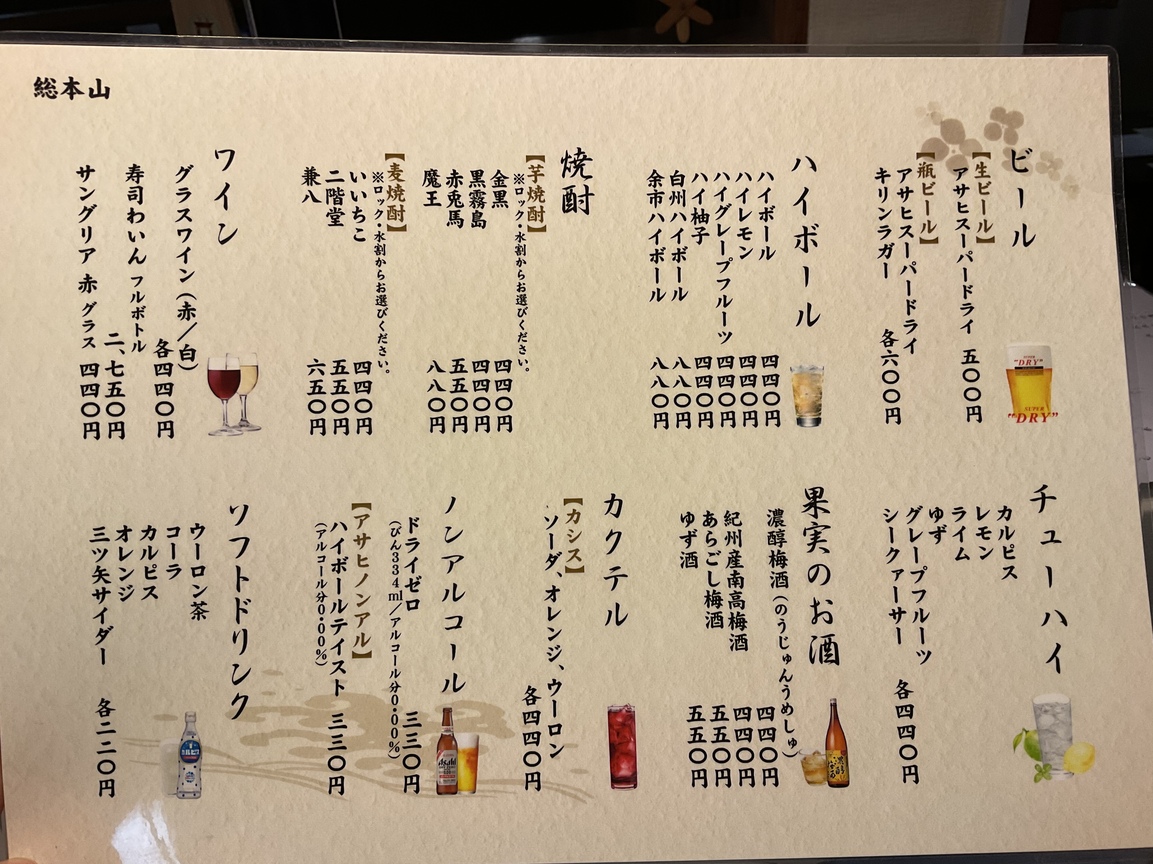 総本山
ビール
【生ビール】
アサヒスーパードライ 五〇〇円
【瓶ビール】
アサヒスーパードライ
キリンラガー 各六〇〇円
ハイボール
ハイボール 四四〇円
ハイレモン 四四〇円
ハイグレープフルーツ 四四〇円
ハイ柚子 四四〇円
白州ハイボール 八八〇円
余市ハイボール 八八〇円
焼酎
【芋焼酎】
※ロック・水割からお選びください。
金黒 四四〇円
黒霧島 四四〇円
赤兎馬 五五〇円
魔王 八八〇円
【麦焼酎】
※ロック・水割からお選びください。
いいちこ 四四〇円
二階堂 五五〇円
兼八 六五〇円
ワイン
グラスワイン(赤/白) 各四四〇円
寿司わいん フルボトル 二、七五〇円
サングリア 赤 グラス 四四〇円
チューハイ
カルピス
レモン
ライム
ゆず
グレープフルーツ
シークァーサー 各四四〇円
果実のお酒
濃醇梅酒(のうじゅんうめしゅ) 四四〇円
紀州産南高梅酒 四四〇円
あらごし梅酒 五五〇円
ゆず酒 五五〇円
カクテル
【カシス】
ソーダ、オレンジ、ウーロン 各四四〇円
ノンアルコール
ドライゼロ 三三〇円
(びん334ml/アルコール分0.00%)
【アサヒノンアル】
ハイボールテイスト 三三〇円
(アルコール分0.00%)
ソフトドリンク
ウーロン茶
コーラ
カルピス
オレンジ
三ツ矢サイダー 各二二〇円
SUPER
"DRY"
SUPER
"DRY"
Asahi